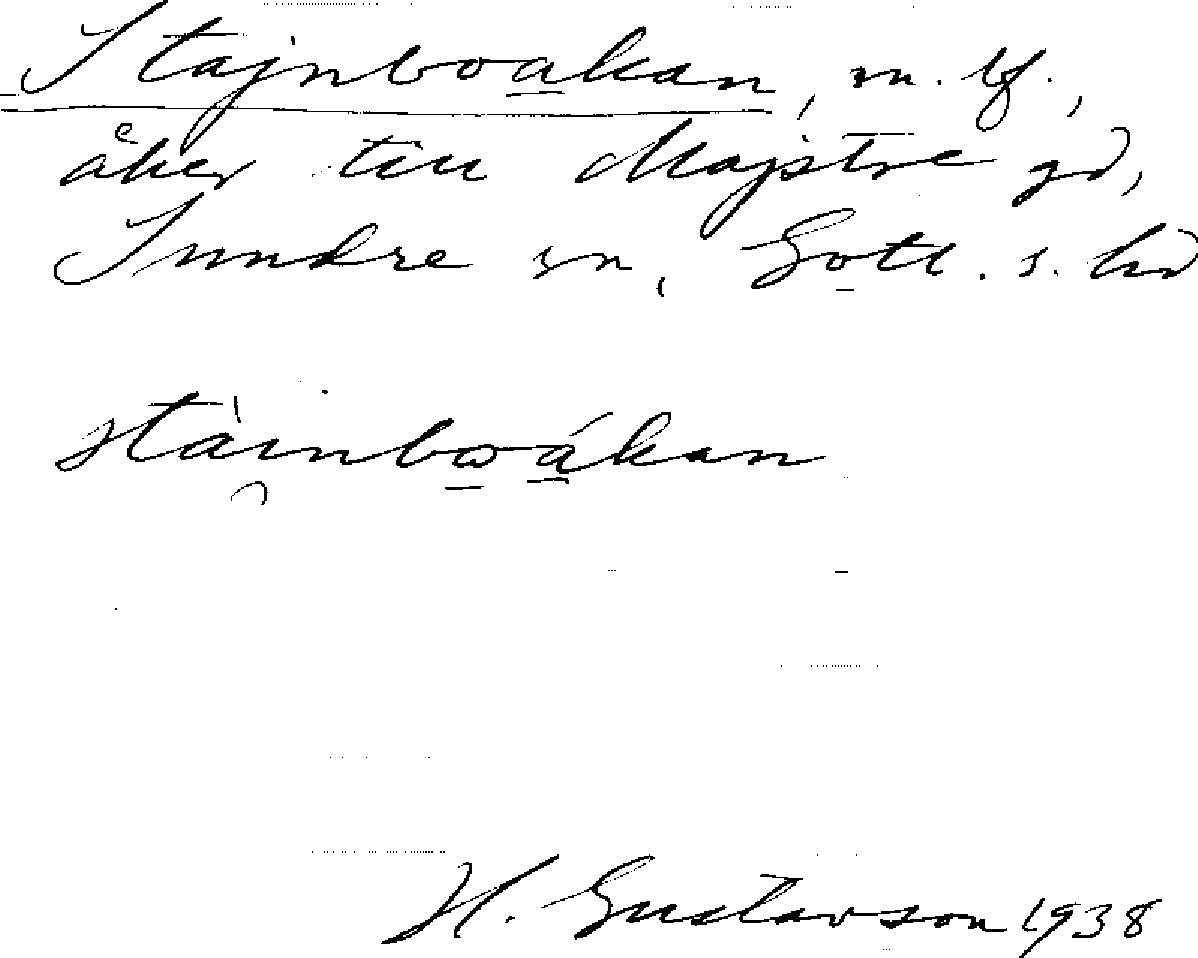 Stajnboakan, m. bf.,
åker till Majstre gd,
Sundre sn, Gotl. s. hd
stàinboákan
H. Gustavson 1938